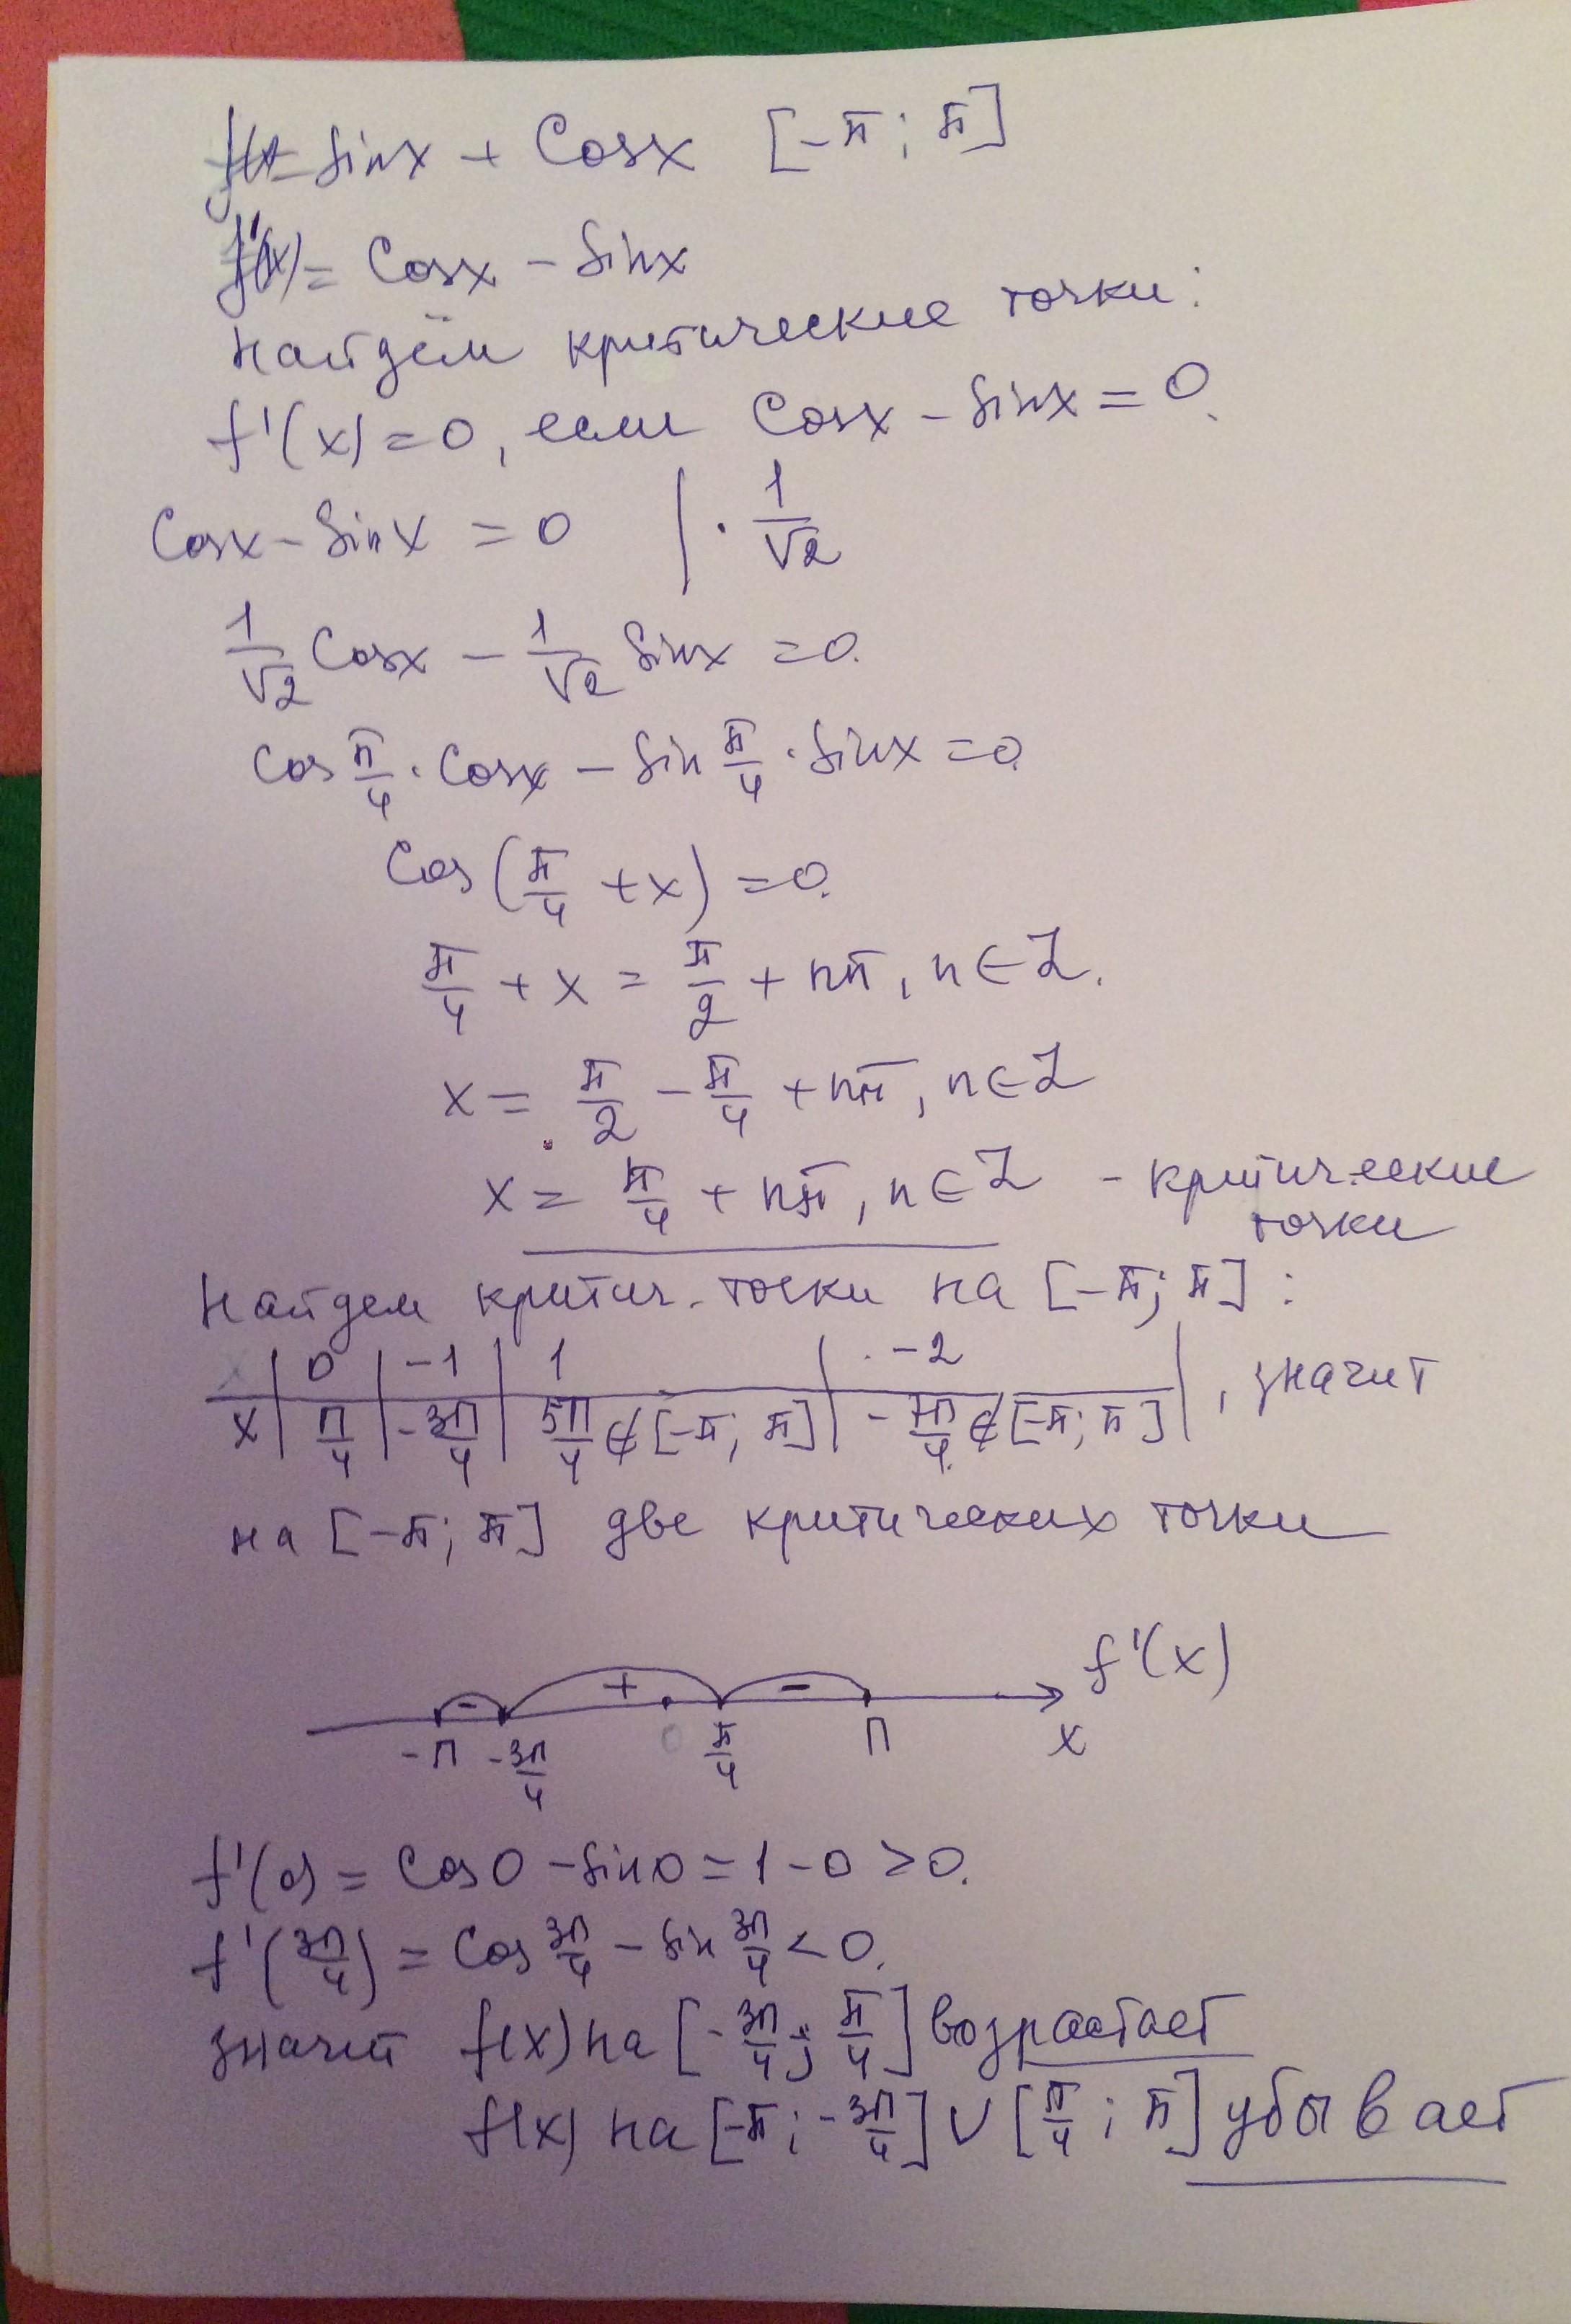 f(x)= Sinx + Cosx [-π; π]
f'(x)= Cosx - Sinx
Найдём критические точки:
f'(x)=0, если Cosx - Sinx = 0.
Cosx - Sinx = 0 | · 1/√2
1/√2 Cosx - 1/√2 Sinx = 0.
Cos π/4 · Cosx - Sin π/4 · Sinx = 0.
Cos (π/4 + x) = 0.
π/4 + x = π/2 + nπ, n ∈ Z.
x = π/2 - π/4 + nπ, n ∈ Z
x = π/4 + nπ, n ∈ Z - критические
точки
Найдем критич. точки на [-π; π] :
| 0 | -1 | 1 | -2 |
x | π/4 | -3π/4 | 5π/4 ∉ [-π; π] | -7π/4 ∉ [-π; π] | , значит
на [-π; π] две критических точки
f'(x)
- + -
-π -3π/4 0 π/4 π x
f'(0) = Cos0 - Sin0 = 1 - 0 > 0.
f'(3π/4) = Cos 3π/4 - Sin 3π/4 < 0.
значит f(x) на [-3π/4; π/4] возрастает
f(x) на [-π; -3π/4] ∪ [π/4; π] убывает